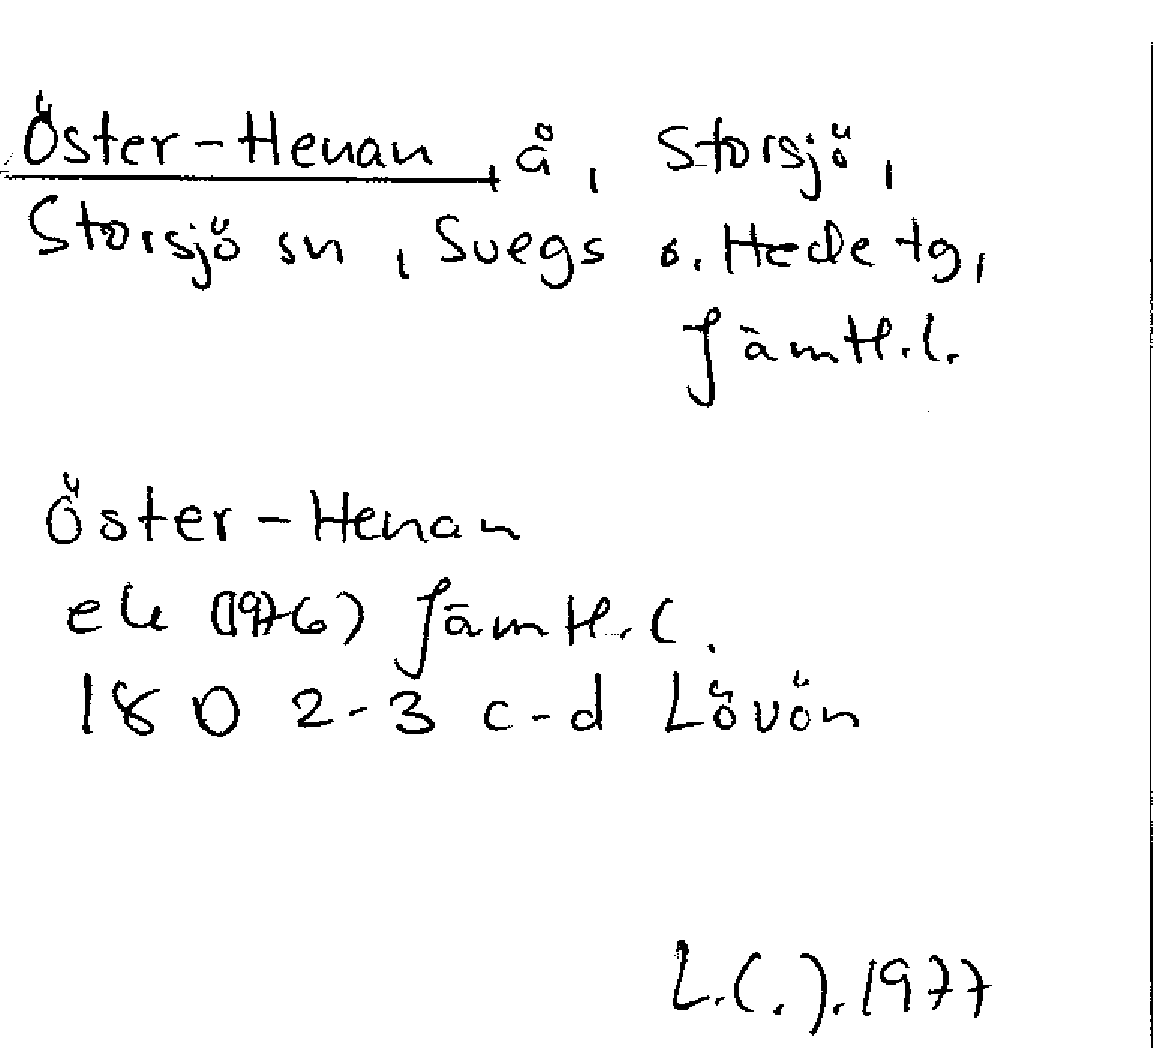 Öster-Henan, å, Storsjö,
Storsjö sn, Svegs o. Hede tg,
Jämtl. l.
Öster-Henan
ek (1976) Jämtl. l.
18 D 2-3 c-d Lövön
L.(.). 1977